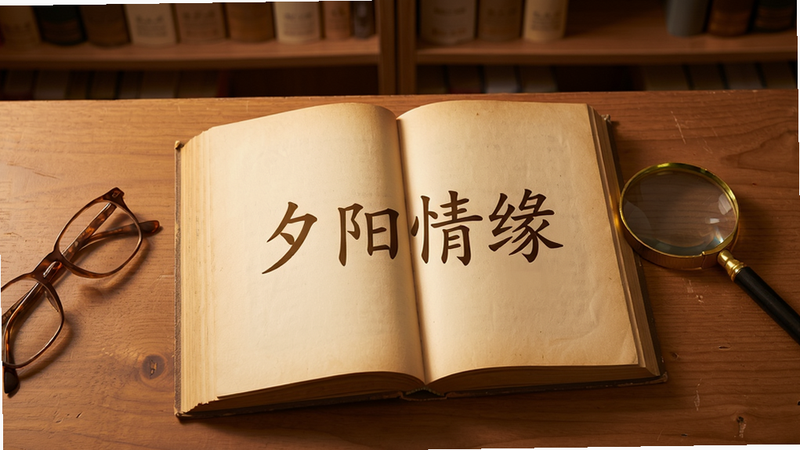 夕阳情缘